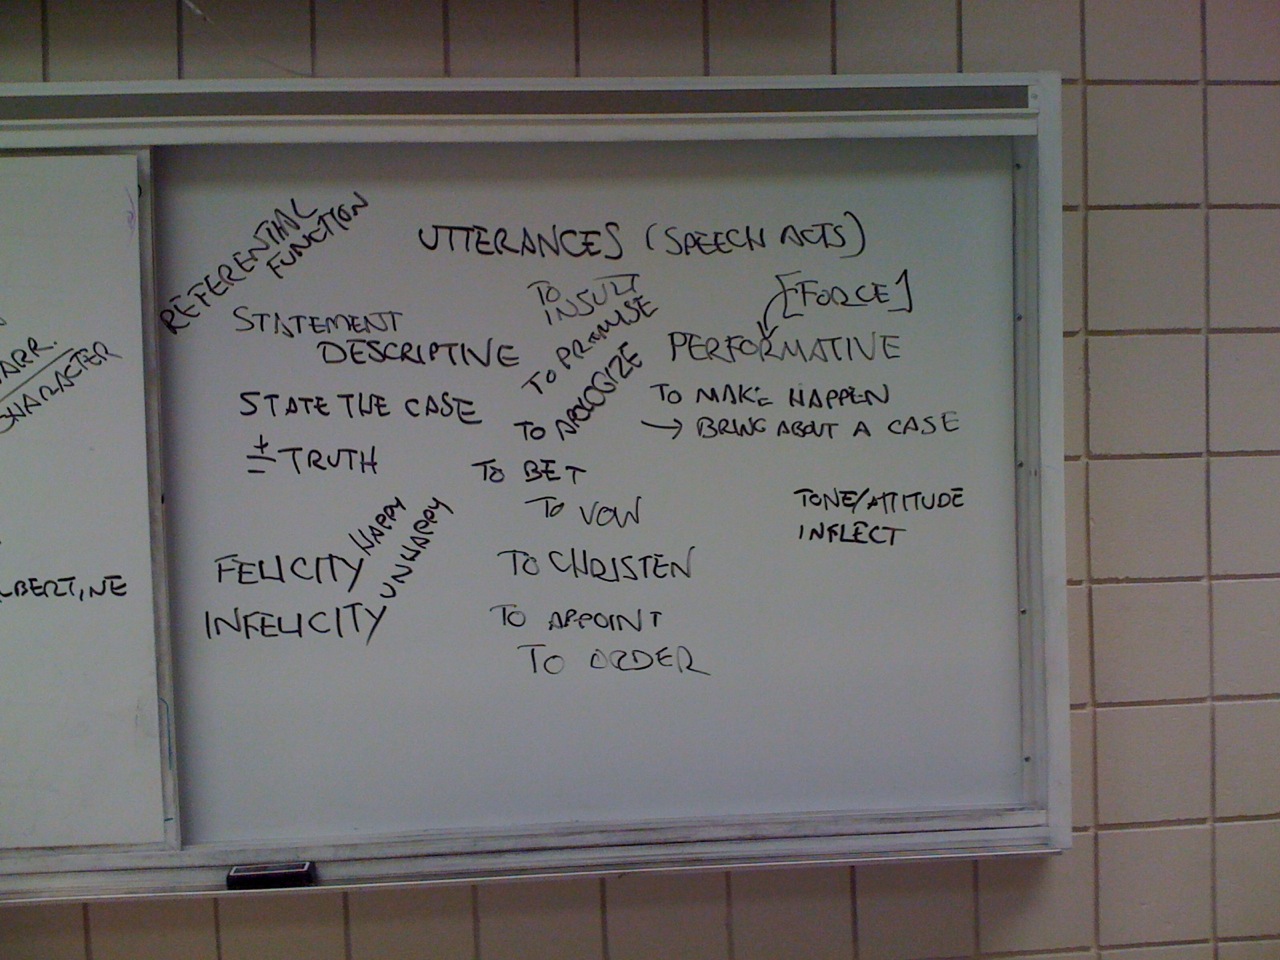 REFERENTIAL
FUNCTION
UTTERANCES (SPEECH ACTS)
[FORCE]
STATEMENT
DESCRIPTIVE
STATE THE CASE
± TRUTH
FELICITY HAPPY
INFELICITY UNHAPPY
TO
INSULT
TO PROMISE
TO APOLOGIZE
TO BET
TO VOW
TO CHRISTEN
TO APPOINT
TO ORDER
PERFORMATIVE
TO MAKE HAPPEN
→ BRING ABOUT A CASE
TONE/ATTITUDE
INFLECT
ARR.
CHARACTER
LBERT, NE